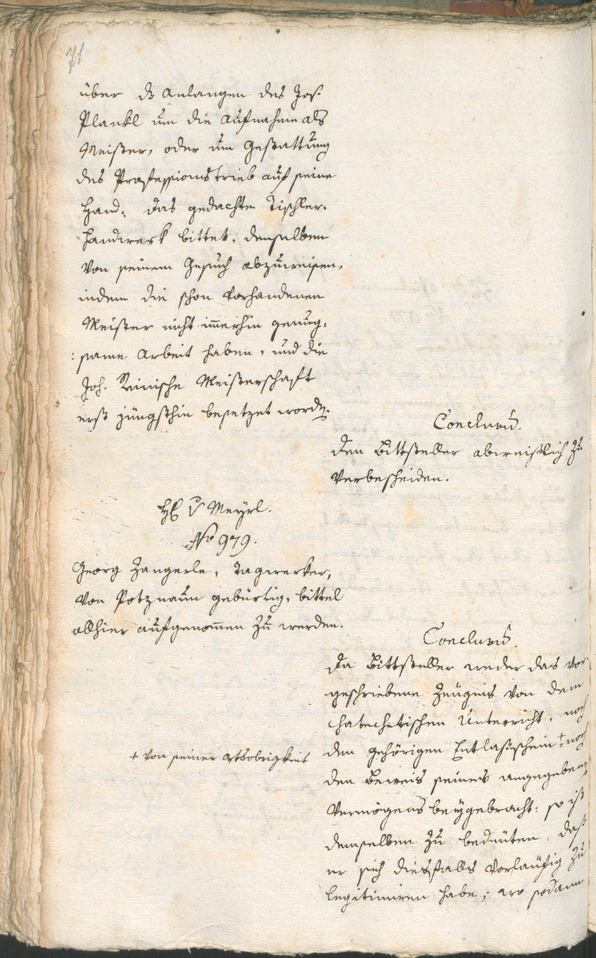 71
über ds Anlangen des Jos.
Plankl um die Aufnahme als
Meister, oder um Gestattung
des Professionstrieb auf seine
Hand. Das gedachte Tischler-
handwerk bittet, denselben
von seinem Gesuch abzuweisen,
indem die schon vorhandenen
Meister nicht immerhin genug-
:same Arbeit haben, und die
Joh. Meisterschaft
erst jüngsthin besetzet worden.
Conclusum.
Den Bittsteller abweislich zu
verbescheiden.
H. v Meyrl.
No 979.
Georg Zangerle, Tagwerker,
von Potznaun gebürtig, bittet
allhier aufgenommen zu werden.
Conclusum.
Da Bittsteller weder das vor
geschriebene Zeugnis von dem
chatechetischen Unterricht, noch
den gehörigen Entlaßschein + noch
+ von seiner Ortsobrigkeit
den Beweis seines angegebenen
Vermögens beygebracht: so ist
demselben zu bedeuten, daß
er sich diesfalls vorläufig zu
legitimiren habe; wo sodann